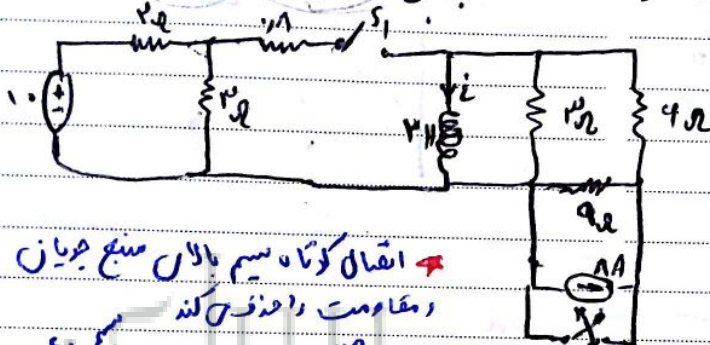 ۲Ω
۰/۸
S₁
۱۰
+
-
۳Ω
i
۳H
۳Ω
۶Ω
۹Ω
۸A
* اتصال کوتاه سیم بالای منبع جریان
و مقاومت را حذف می کند